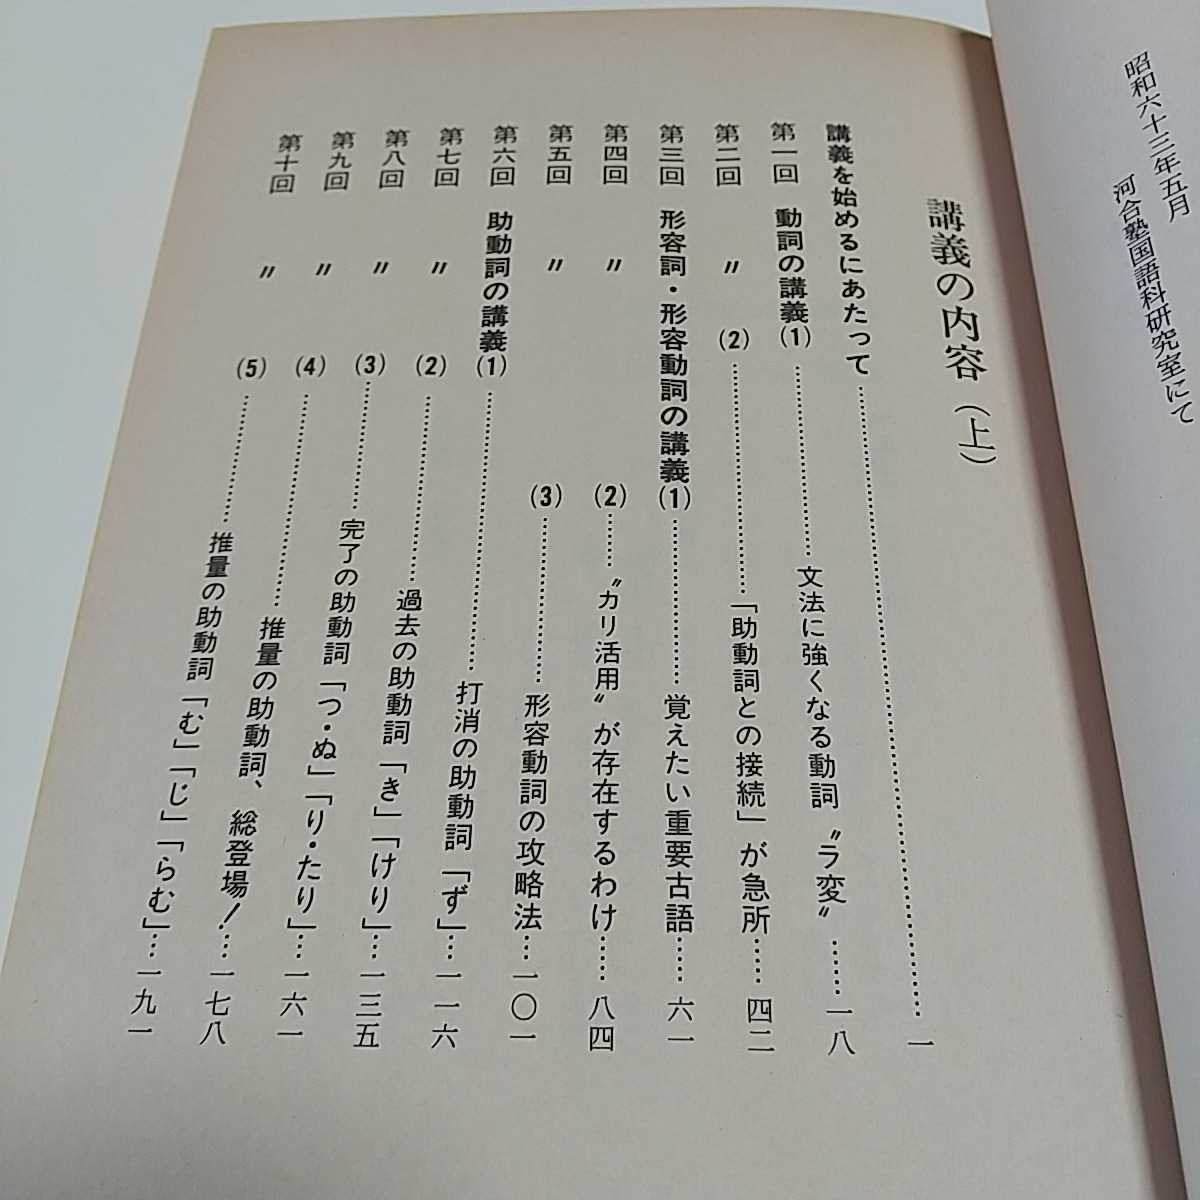 昭和六十三年五月
河合塾国語科研究室にて
講義の内容(上)
講義を始めるにあたって………………………………一
第一回 動詞の講義(1)……………文法に強くなる動詞〝ラ変〟……一八
第二回 〃 (2)………………「助動詞との接続」が急所……四二
第三回 形容詞・形容動詞の講義(1)…………覚えたい重要古語……六一
第四回 〃 (2)……〝カリ活用〟が存在するわけ……八四
第五回 〃 (3)…………形容動詞の攻略法…一〇一
第六回 助動詞の講義(1)…………………打消の助動詞「ず」…一一六
第七回 〃 (2)……………過去の助動詞「き」「けり」…一三五
第八回 〃 (3)…………完了の助動詞「つ・ぬ」「り・たり」…一六一
第九回 〃 (4)………………推量の助動詞、総登場!…一七八
第十回 〃 (5)…………推量の助動詞「む」「じ」「らむ」…一九一